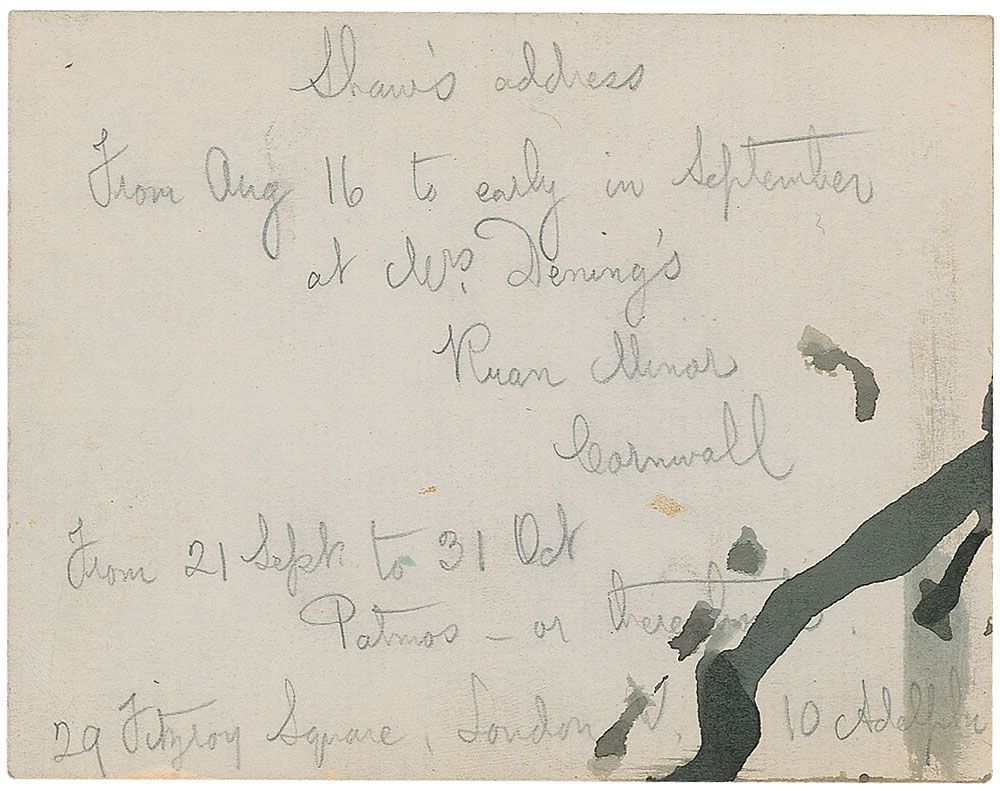 Shaw's address
From Aug 16 to early in September
at Mrs. Dening's
Ruan Minor
Cornwall
From 21 Sept. to 31 Oct
Patmos – or
29 Fitzroy Square, London W. 10 Adelphi